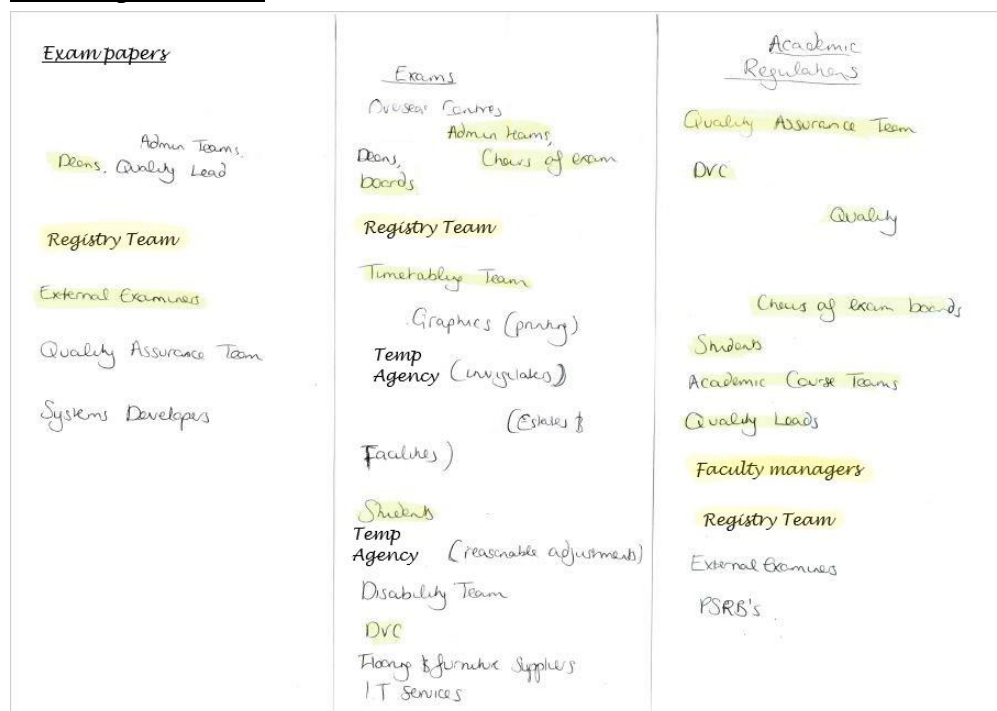 Exam papers
Admin Teams,
Deans, Quality Lead
Registry Team
External Examiners
Quality Assurance Team
Systems Developers
Exams
Overseas Centres
Admin teams,
Deans, Chairs of exam
boards
Registry Team
Timetabling Team
Graphics (printing)
Temp
Agency (invigilates)
(Estates &
Facilities)
Students
Temp
Agency (reasonable adjustments)
Disability Team
DVC
& furniture Suppliers
IT Services
Academic
Regulations
Quality Assurance Team
DVC
Quality
Chairs of exam boards
Students
Academic Course Teams
Quality Leads
Faculty managers
Registry Team
External Examiners
PSRB's